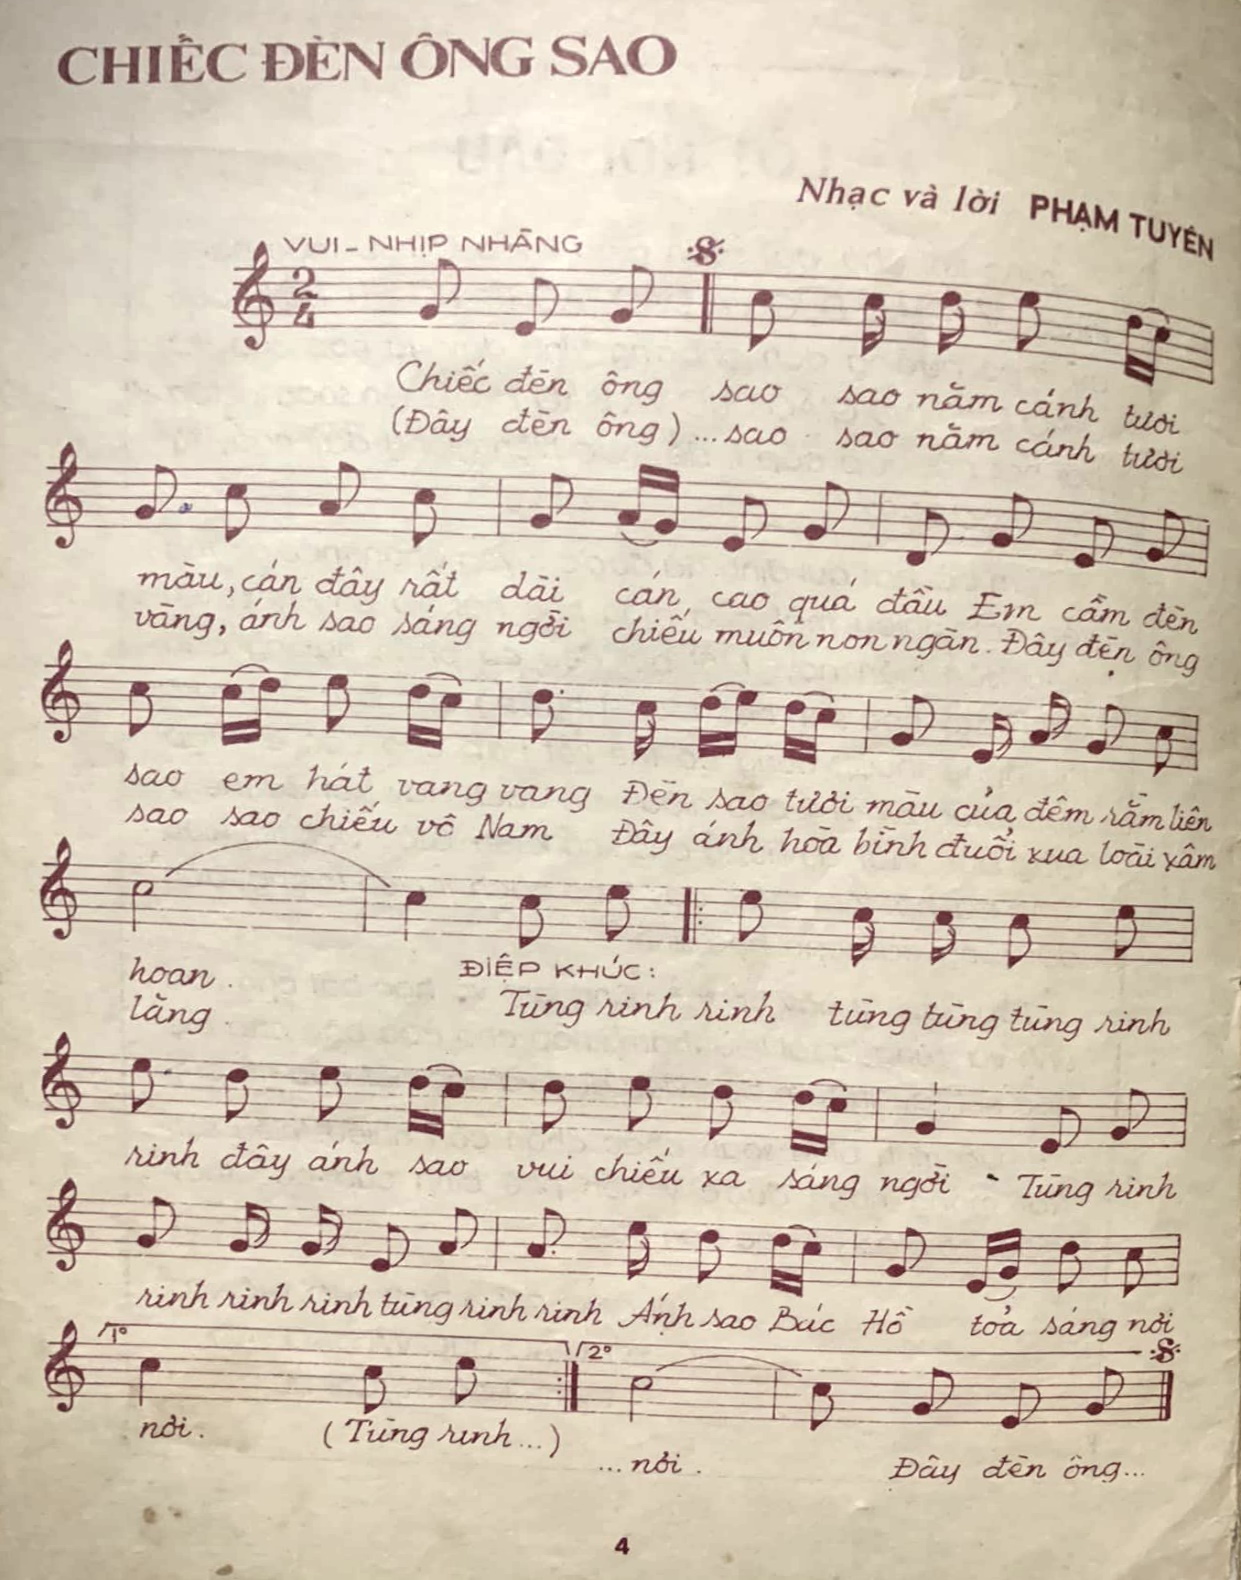 CHIẾC ĐÈN ÔNG SAO
Nhạc và lời PHẠM TUYÊN
VUI - NHỊP NHÀNG
2
4
Chiếc đèn ông sao sao năm cánh tươi
(Đây đèn ông)...sao sao năm cánh tươi
màu, cán đây rất dài cán cao quá đầu Em cầm đèn
vàng, ánh sao sáng ngời chiếu muôn non ngàn. Đây đèn ông
sao em hát vang vang Đèn sao tươi màu của đêm rằm liên
sao sao chiếu vô Nam Đây ánh hòa bình đuổi xua loài xâm
hoan.
ĐIỆP KHÚC:
lăng. Tùng rinh rinh tùng tùng tùng rinh
rinh đây ánh sao vui chiếu xa sáng ngời - Tùng rinh
rinh rinh rinh tùng rinh rinh Ánh sao Bác Hồ tỏa sáng nơi
1° 2°
nơi. (Tùng rinh...)
...nơi. Đây đèn ông...
4